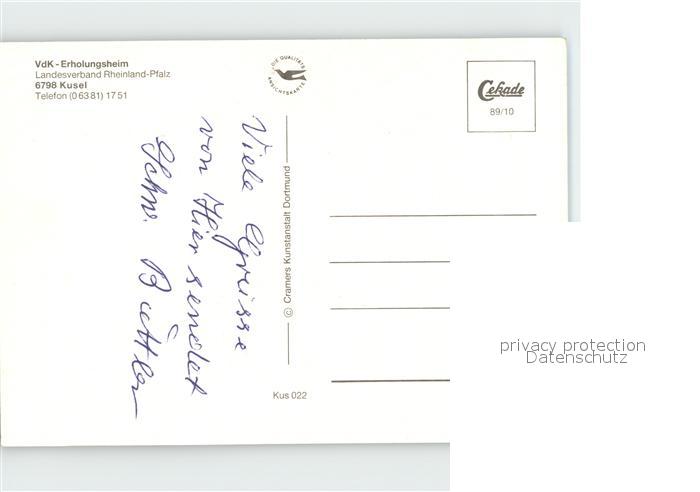 VdK - Erholungsheim
Landesverband Rheinland-Pfalz
6798 Kusel
Telefon (0 63 81) 17 51
DIE QUALITÄTS
ANSICHTSKARTE
Cekade
89/10
Viele Grüsse
von Hier sendet
Schw.
© Cramers Kunstanstalt Dortmund
Kus 022
privacy protection
Datenschutz